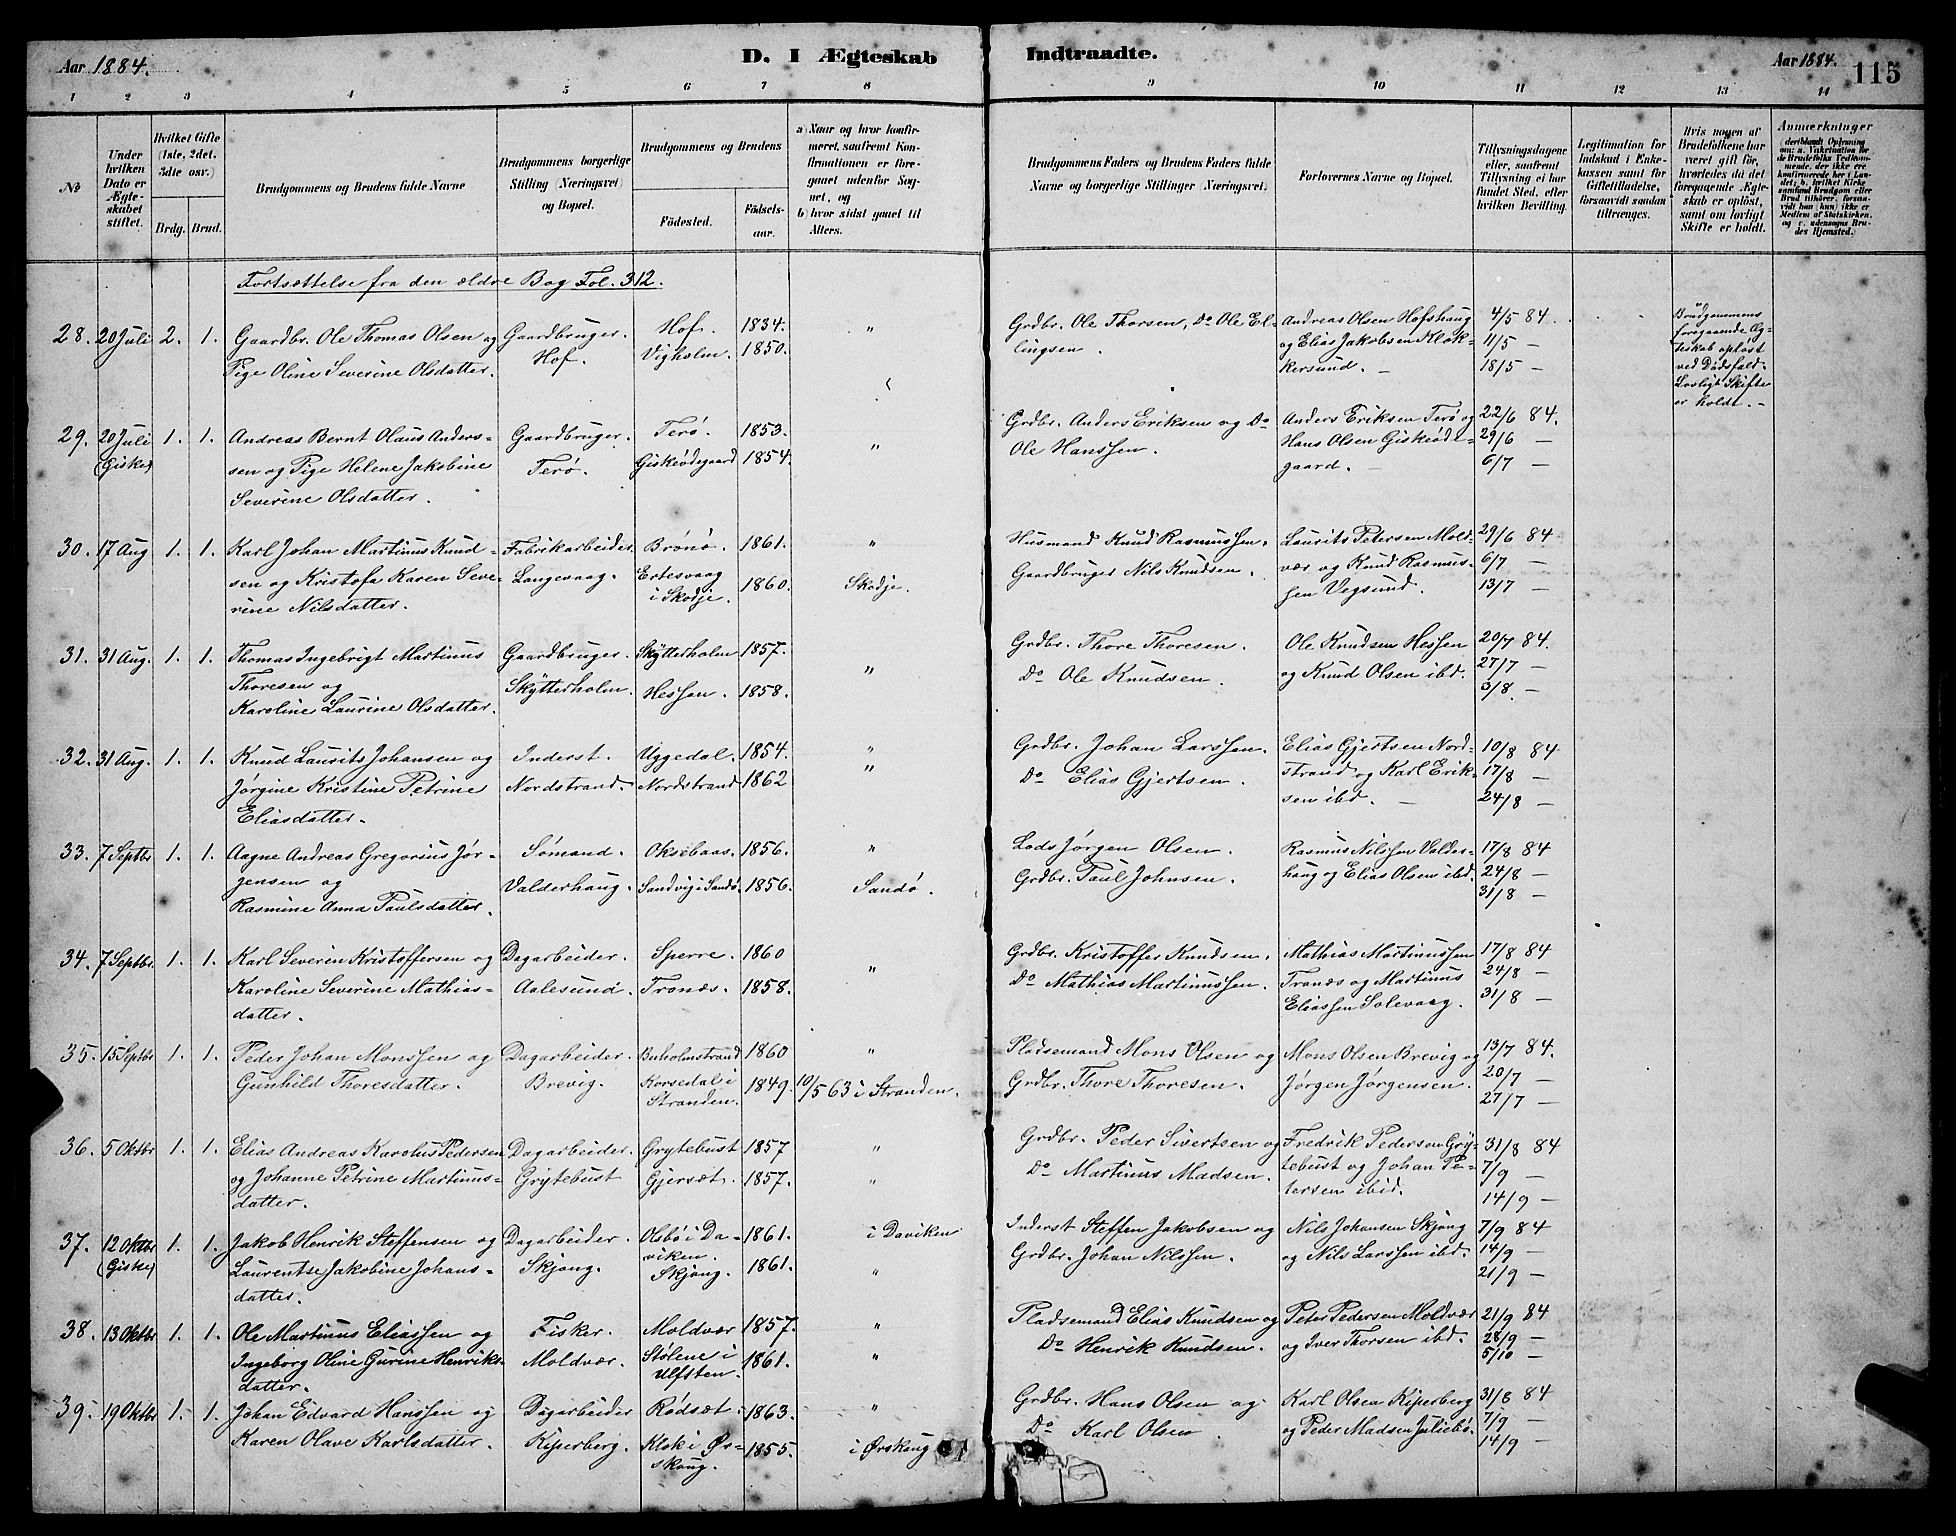 Aar 1884.
D. I Ægteskab
Indtraadte.
Aar 1884.
115
1 2 3 4 5 6 7 8 9 10 11 12 13 14
No
Under hvilken Dato er Ægteskabet stiftet.
Hvilket Gifte (1ste, 2det, 3die osv.)
Brdg. Brud.
Brudgommens og Brudens fulde Navne
Brudgommens borgerlige Stilling (Næringsvei) og Bopæl.
Brudgommens og Brudens
Fødested.
Fødselsaar.
a) Naar og hvor konfirmeret, saafremt Konfirmationen er foregaaet udenfor Sognet, og
b) hvor sidst gaaet til Alters.
Brudgommens Faders og Brudens Faders fulde Navne og borgerlige Stillinger (Næringsvei)
Forlovernes Navne og Bopæl.
Tillysningsdagene eller, saafremt Tillysning ei har fundet Sted, efter hvilken Bevilling.
Legitimation for Indskud i Enkekassen samt for Giftetilladelse, forsaavidt saadan tiltrænges.
Hvis nogen af Brudefolkene har været gift før, hvorledes da det foregaaende Ægteskab er opløst, samt om lovligt Skifte er holdt.
Anmærkninger
(deriblandt Oplysning om: a. Vakcination for de Brudefolks Vedkommende, der ikke ere konfirmerede her i Landet; b. hvilket Kirkesamfund Brudgom eller Brud tilhører, forsaavidt han (hun) ikke er Medlem af Statskirken, og c. udensogns Brudes Hjemsted.)
Fortsættelse fra den ældre Bog Fol. 312.
28. 20 Juli 2. 1. Gaardbr. Ole Thomas Olsen og Gaardbruger. Hof. 1834. " Grdbr. Ole Thorsen, Do Ole El- Andreas Olsen Hofshaug 4/5 84. Brudgommens
Pige Oline Severine Olsdatter. Hof. Vigholm. 1850. lingsen. og Elias Jakobsen Klok- 11/5 — foregaaende Æg-
kersund. — 18/5 — teskab opløst
ved Dødsfald.
Lovligt Skifte
er holdt. —
29. 20 Juli 1. 1. Andreas Bernt Olaus Anders- Gaardbruger. Terø. 1853. " Grdbr. Anders Eriksen og Do Anders Eriksen Terø og 22/6 84.
(Giske) sen og Pige Helene Jakobine Terø. Giskeødegaard 1854. Ole Hanssen. Hans Olsen Giskeøde- 29/6 —
Severine Olsdatter. gaard. — 6/7 —
30. 17 Aug 1. 1. Karl Johan Martinus Knud- Fabrikarbeider. Brønø. 1861. " Husmand Knud Rasmussen. Laurits Petersen Mold- 29/6 84
sen og Kristofa Karen Seve- Langevaag. Ertesvaag i Skodje. 1860. Skodje. Gaardbruger Nils Knudsen. vær og Knud Rasmus- 6/7 —
rine Nilsdatter. sen Vegsund. 13/7 —
31. 31 Aug. 1. 1. Thomas Ingebrigt Martinus Gaardbruger. Skytterholm 1857. " Grdbr. Thore Thoresen. Ole Knudsen Hessen 20/7 84.
Thoresen og Skytterholm. Hessen. 1858. Do Ole Knudsen. og Knud Olsen ibd. 27/7 —
Karoline Laurine Olsdatter. 3/8. —
32. 31 Aug. 1. 1. Knud Laurits Johansen og Inderst. Uggedal. 1854. " Grdbr. Johan Larssen. Elias Gjertsen Nord- 10/8 84
Jørgine Kristine Petrine Nordstrand. Nordstrand 1862 " Do Elias Gjertsen. strand og Karl Erik- 17/8 —
Eliasdatter. sen ibd. — 24/8 —
33. 7 Septbr 1. 1. Aagne Andreas Gregorius Jør- Sømand. Oksebaas. 1856. " Lods Jørgen Olsen. Rasmus Nilssen Valder- 17/8 84
gensen og Valderhaug. Sandvig i Sandø 1856. Sandø. Grdbr. Paul Johnsen. haug og Elias Olsen ibd. 24/8 —
Rasmine Anna Paulsdatter. 31/8 —
34. 7 Septbr. 1. 1. Karl Severin Kristoffersen og Dagarbeider. Sperre. 1860 " Grdbr. Kristoffer Knudsen. Mathias Martinussen 17/8 84
Karoline Severine Mathias- Aalesund. Tranæs. 1858. Do Mathias Martinussen. Tranæs og Martinus 24/8 —
datter. Eliassen Solevaag. 31/8 —
35. 15 Septbr 1. 1. Peder Johan Monssen og Dagarbeider. Buholmstrand 1860 " Pladsemand Mons Olsen og Mons Olsen Brevig og 13/7 84.
Gunhild Thoresdatter. Brevig. Korsedal i Stranden. 1849. 10/5 63 i Stranden. Grdbr. Thore Thoresen. Jørgen Jørgensen. 20/7 —
27/7 —
36. 5 Oktbr 1. 1. Elias Andreas Karolus Pedersen Dagarbeider. Grytebust 1857 " Grdbr. Peder Sivertsen og Fredrik Pedersen Gry- 31/8 84
og Johanne Petrine Martinus- Grytebust Gjersæt. 1857. " Do Martinus Madsen. tebust og Johan Pe- 7/9 —
datter. tersen ibid. 14/9 —
37. 12 Oktbr 1. 1. Jakob Henrik Steffensen og Dagarbeider. Olsbø i Daviken. 1861. i Daviken Inderst Steffen Jakobsen og Nils Johansen Skjong 7/9 84
(Giske) Laurentse Jakobine Johans- Skjong. Skjong. 1861. " Grdbr. Johan Nilssen. og Nils Larssen ibd. 14/9 —
datter. 21/9 —
38. 13 Oktbr 1. 1. Ole Martinus Eliassen og Fisker. Moldvær 1857. " Pladsemand Elias Knudsen og Peter Pedersen Moldvær 21/9 84
Ingeborg Oline Gurine Henriks- Moldvær. Stølene i Ulfsten. 1861. " Do Henrik Knudsen. og Iver Thorsen ibd. 28/9 —
datter. 5/10 —
39. 19 Oktbr 1. 1. Johan Edvard Hanssen og Dagarbeider Rødsæt. 1863. " Grdbr. Hans Olsen og Karl Olsen Kiperberg 31/8 84
Karen Olave Karlsdatter. Kiperberg. Klok i Ørskoug. 1855. i Ørskoug Do Karl Olsen. og Peder Madsen Juliebø. 7/9 —
14/9 —